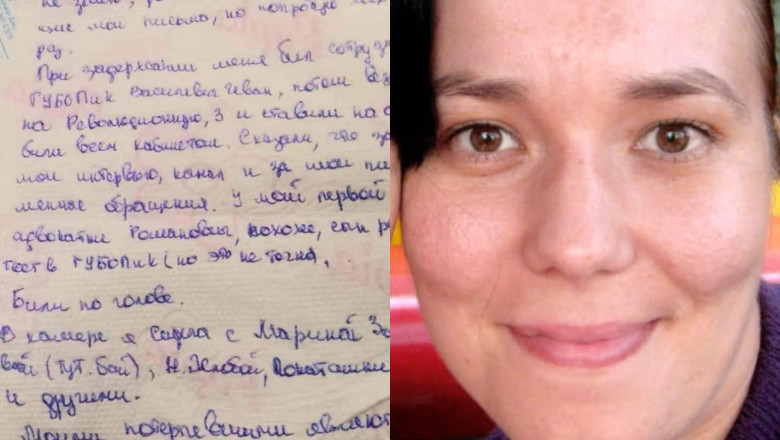 не знаю,
кие мои письмо, но попрошу
раз.
При задержании меня бил сотруд
ГУБОПиК Василевич Иван, потом
на Революционную, 3 и ставили на
били всем кабинетом. Сказали, что за
мои интервью, канал и за мои
менные обращения. У моей первой
адвокатки Романовны, похоже, сын
тест в ГУБОПиК (но это не точно,
Били по голове.
В камере я сидела с Мариной Зо
вой (тут.бай), Н. Жлобой,
и другими.
Моими потерпевшими являют